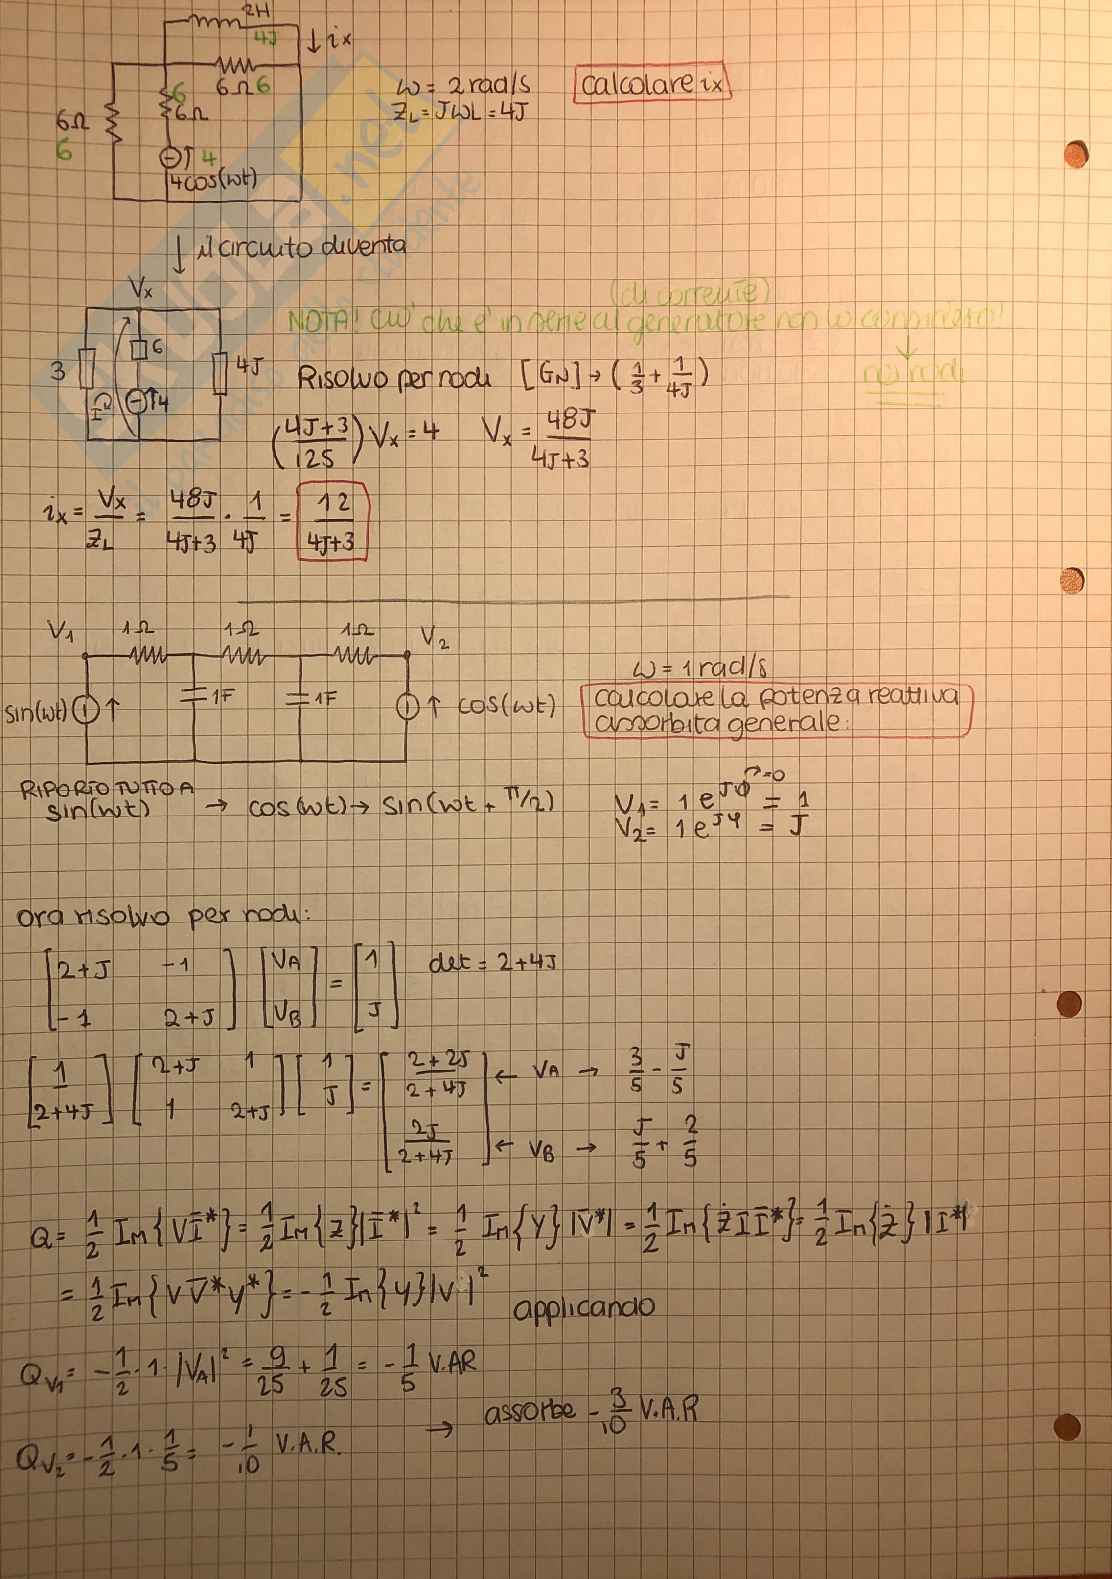 2H
4J
↓ ix
6Ω 6
6
6Ω
6Ω
6
↑ 4
4cos(wt)
ω = 2 rad/s
ZL = JWL = 4J
calcolare ix
↓ il circuito diventa
Vx
3
6
↑4
4J
I
(di corrente)
NOTA! Ciò che è in serie al generatore non lo considero!
↓
nei nodi
Risolvo per nodi [GN] → (1/3 + 1/4J)
((4J+3)/12J) Vx = 4 Vx = 48J/(4J+3)
ix = Vx/ZL = 48J/(4J+3) · 1/4J = 12/(4J+3)
V1 1Ω 1Ω 1Ω V2
sin(wt) ↑ 1F 1F ↑ cos(wt)
ω = 1 rad/s
calcolare la potenza reattiva
assorbita generale:
RIPORTO TUTTO A
sin(wt) → cos(wt) → sin(wt + π/2)
V1 = 1 e^Jφ = 1
→=0
V2 = 1 e^Jφ = J
ora risolvo per nodi:
[2+J -1; -1 2+J] [VA; VB] = [1; J] det = 2+4J
[1/(2+4J)] [2+J 1; 1 2+J] [1; J] = [(2+2J)/(2+4J); 2J/(2+4J)]
← VA → 3/5 - J/5
← VB → J/5 + 2/5
Q = 1/2 Im{V Ī*} = 1/2 Im{z}|Ī*|² = 1/2 Im{Y}|V̄*| = 1/2 Im{ŻI Ī*} = 1/2 Im{Ż}|I*|
= 1/2 Im{V V̄* y*} = -1/2 Im{y}|V|² applicando
QV1 = -1/2 · 1 · |VA|² = 9/25 + 1/25 = -1/5 V.AR
QV2 = -1/2 · 1 · 1/5 = -1/10 V.A.R.
→ assorbe -3/10 V.A.R